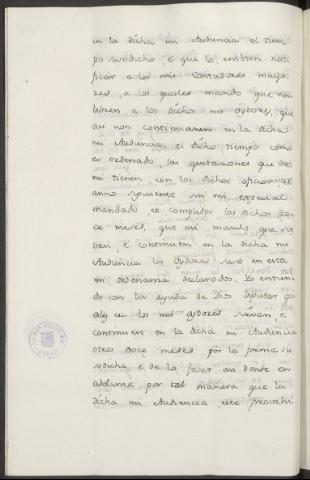 en la dicha mi Audiencia el tiem
po susodicho, é que lo embien noti
ficar a los mis Contadores mayo
res, a los quales mando que non
libren a los dichos mis oydores, que
asi non continuaren en la dicha
mi Audiencia, el dicho tiempo como
es ordenado, las quitaciones que de
mi tienen, con los dichos oficios el
anno siguiente sin mi especial
mandado, es complidos los dichos do
ce meses, que asi mando, que sir
ban, é continuen en la dicha mi
Audiencia los Oydores suso en esta
mi ordenanza declarados. Yo entien
do con la ayuda de Dios diputar qua
les los mis oydores sirvan, é
continuen en la dicha mi Audiencia
otros doce meses por la forma su
sodicha, é de lo facer asi dende en
adelante por tal manera que la
dicha mi Audiencia, esté provehi